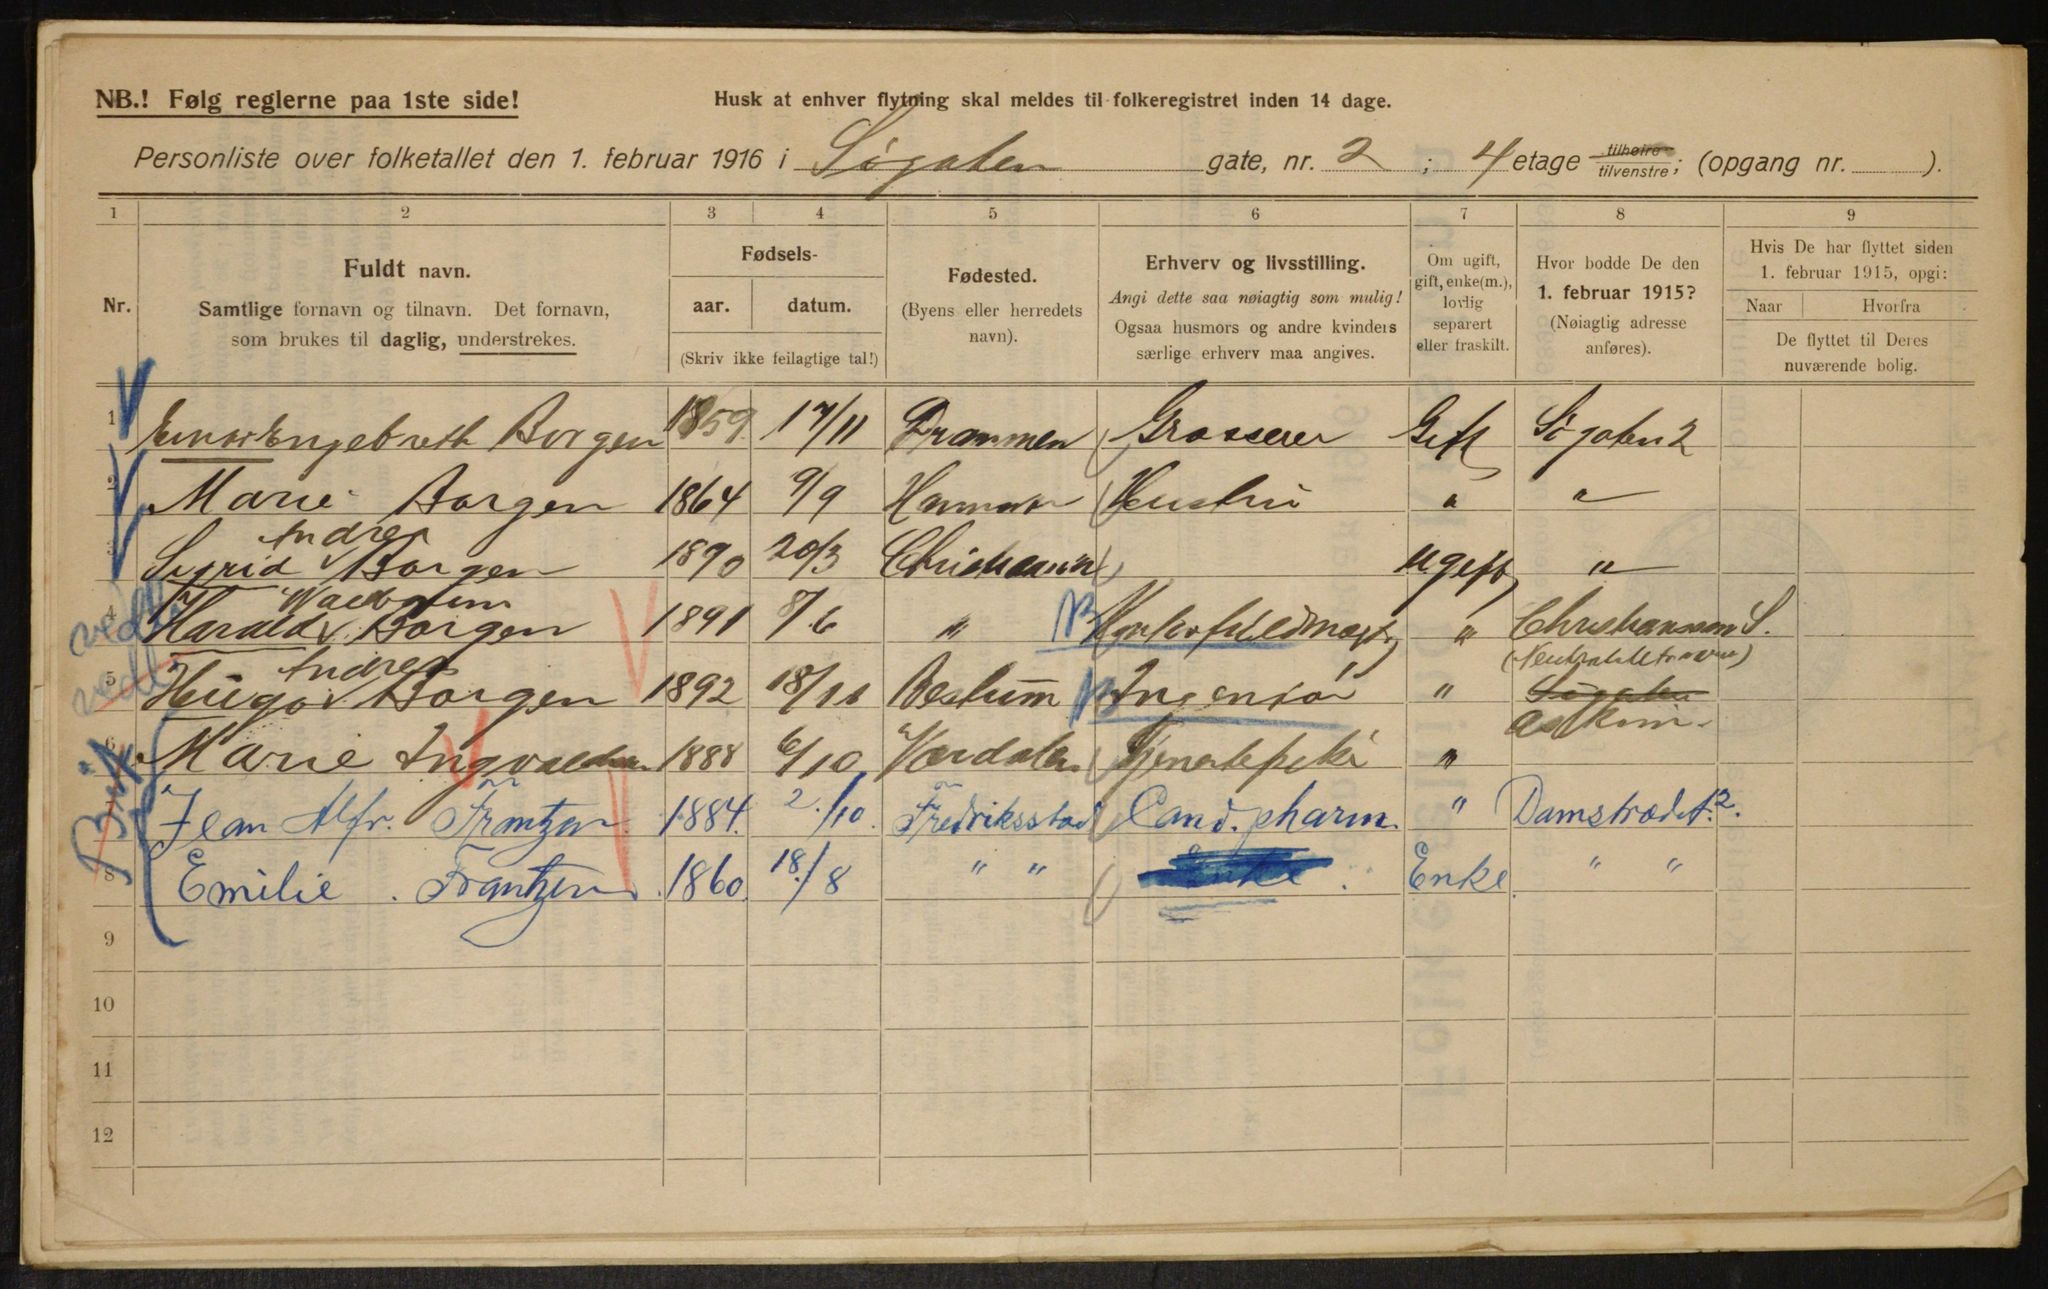 NB.! Følg reglerne paa 1ste side!
Husk at enhver flytning skal meldes til folkeregistret inden 14 dage.
Personliste over folketallet den 1. februar 1916 i Søgaten gate, nr. 2 ; 4 etage tilhøire tilvenstre; (opgang nr. ).
1 2 3 4 5 6 7 8 9
Nr.
Fuldt navn.
Samtlige fornavn og tilnavn. Det fornavn,
som brukes til daglig, understrekes.
Fødsels-
aar. datum.
(Skriv ikke feilagtige tal!)
Fødested.
(Byens eller herredets
navn).
Erhverv og livsstilling.
Angi dette saa nøiagtig som mulig!
Ogsaa husmors og andre kvinders
særlige erhverv maa angives.
Om ugift,
gift, enke(m.),
lovlig
separert
eller fraskilt.
Hvor bodde De den
1. februar 1915?
(Nøiagtig adresse
anføres).
Hvis De har flyttet siden
1. februar 1915, opgi:
Naar Hvorfra
De flyttet til Deres
nuværende bolig.
1 Einar Engebreth Borgen 1859 17/11 Drammen Grosserer Gift Søgaten 2
2 Marie Borgen 1864 9/9 Hamar Hustru " "
Andrea
3 Sigrid Borgen 1890 20/3 Christiania ugift "
4 Harald Borgen 1891 8/6 " " Christianssund S.
Andreas
5 Hugo Borgen 1892 18/11 Bestum Ingeniør " Søgaten
Askim
6 Marie Ingvaldsen 1888 6/10 Værdalen Tjenestepike "
7 Jean Alfr. Frantzen 1884. 2./10. Fredriksstad Cand. pharm. " Damstrædet 2.
8 Emilie Frantzen 1860. 18./8 " " Enke. Enke " "
9
10
11
12